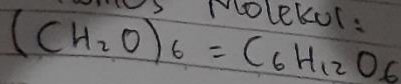 Molekul:
(CH₂O)6 = C6H12O6